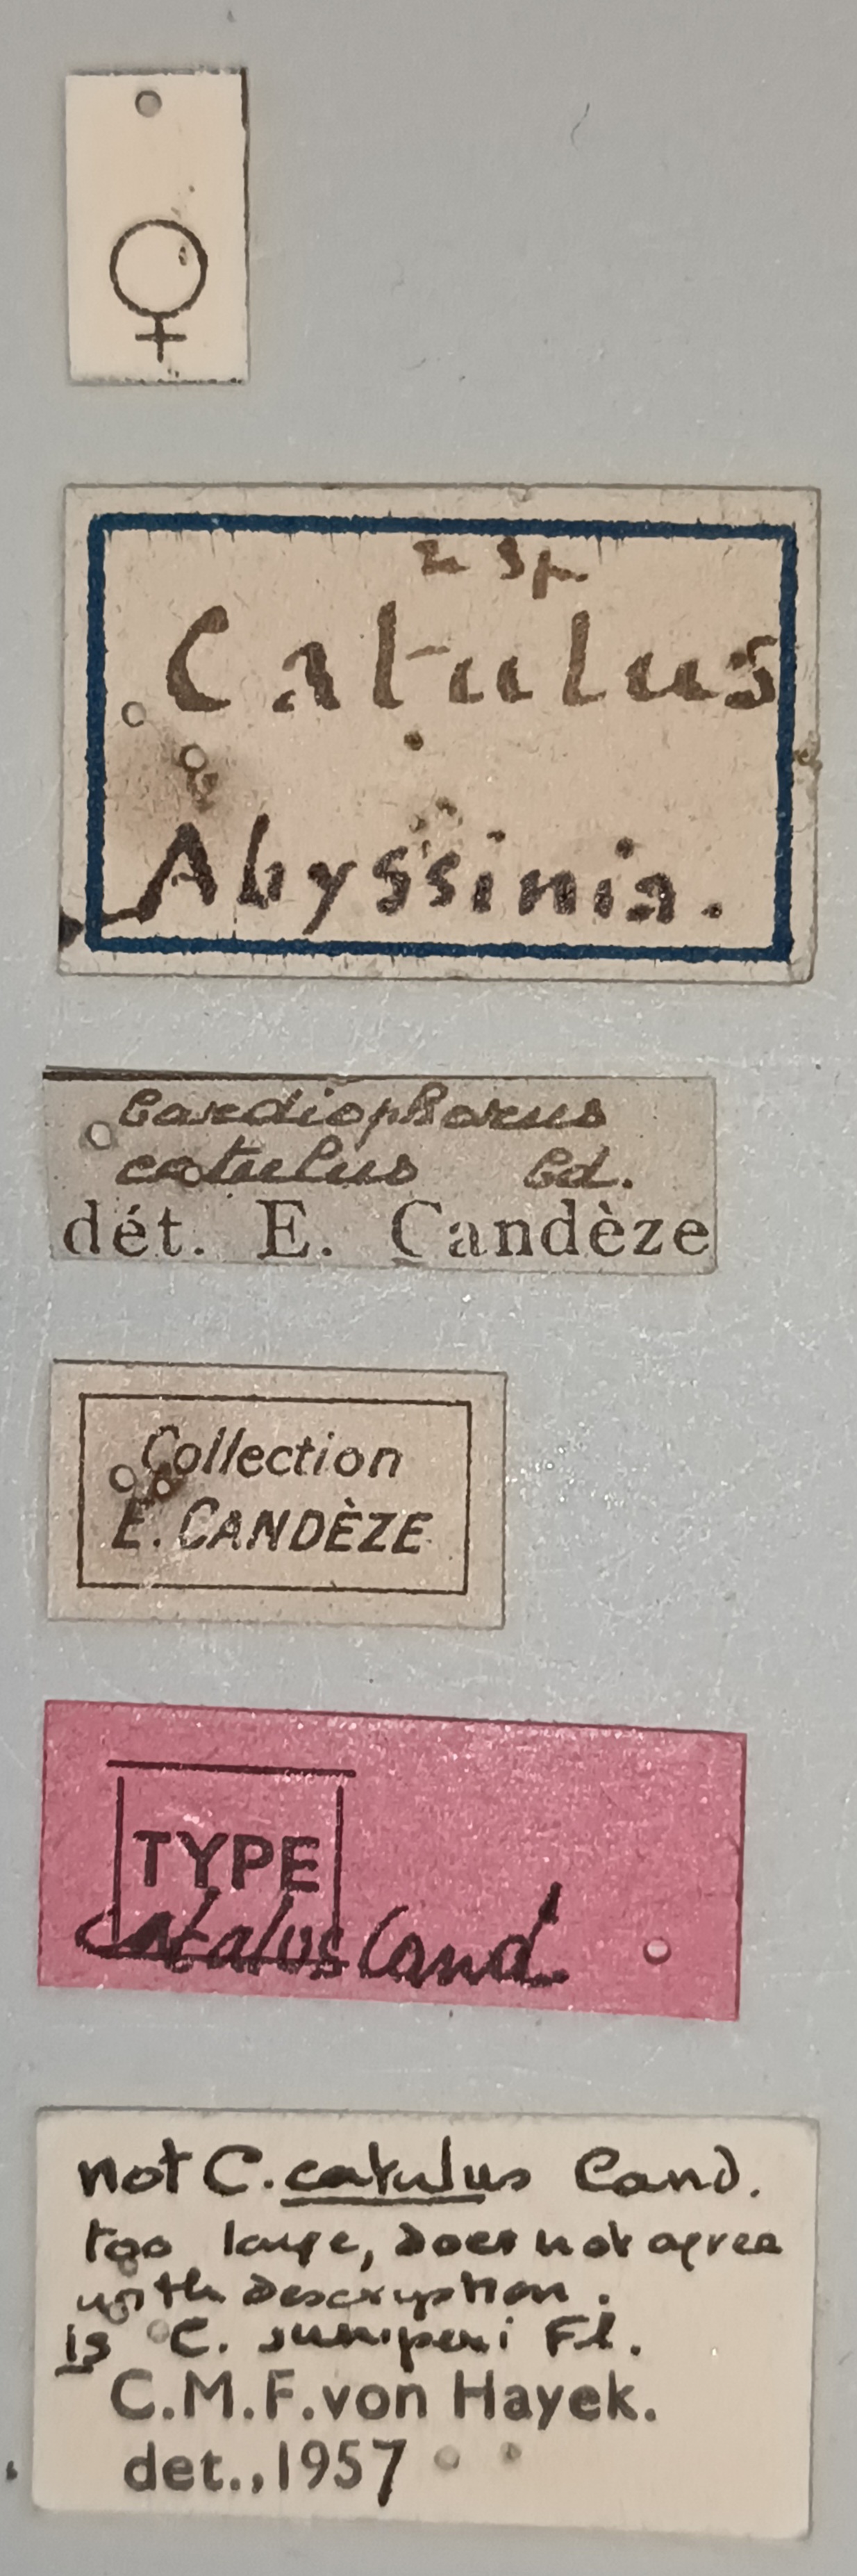 ♀
n sp.
Catulus
Abyssinia.
Cardiophorus
catulus Cd.
dét. E. Candèze
Collection
E. CANDÈZE
TYPE
catalus Cand.
not C. catulus Cand.
too large, does not agree
with description.
Is C. juniperi Fl.
C.M.F. von Hayek.
det., 1957